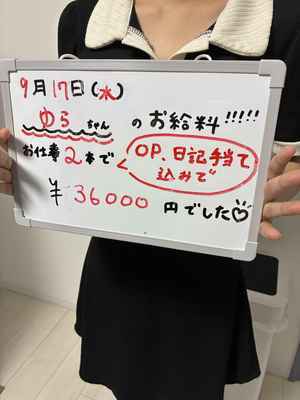 9月17日(水)
ゆらちゃんのお給料!!!!!
お仕事2本で
OP、日記手当て
込みで
¥36000円でした♡